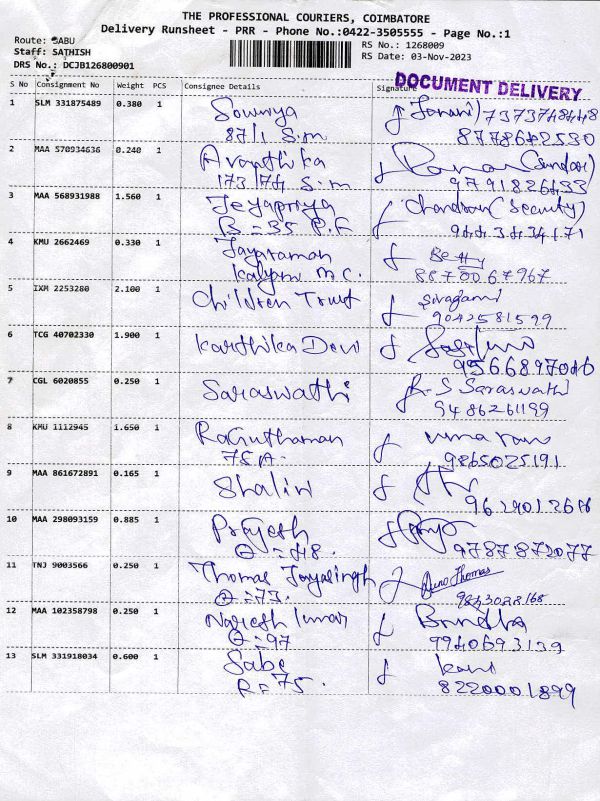 THE PROFESSIONAL COURIERS, COIMBATORE
Delivery Runsheet - PRR - Phone No.:0422-3505555 - Page No.:1
Route: SABU
Staff: SATHISH
DRS No.: DCJB126800901
RS No.: 1268009
RS Date: 03-Nov-2023
S No Consignment No Weight PCS Consignee Details Signature
DOCUMENT DELIVERY
1 SLM 331875489 0.380 1 Sowmya
87/1 S.m 8778642530
2 MAA 570934636 0.240 1 Avanthika
173,174 S.m 9791826433
3 MAA 568931988 1.560 1 Jeyapriya Chandran (Security)
B=35 P.F
4 KMU 2662469 0.330 1 Jayaraman Betty
Kalyani M.C. 8870067967
5 IXM 2253280 2.100 1 Children Trust Sivagami
9042581599
6 TCG 40702330 1.900 1 Karthika Devi
7 CGL 6020855 0.250 1 Saraswathi S Saraswathi
9486261199
8 KMU 1112945 1.650 1 Raguthaman
75A. 9865025191
9 MAA 861672891 0.165 1 Shalini
10 MAA 298093159 0.885 1 Prajesh
9787872077
11 TNJ 9003566 0.250 1 Thomas Jayasingh Thomas
=73.
12 MAA 102358798 0.250 1 Nagesh kumar
=97 9940693139
13 SLM 331918034 0.600 1 Sabe
R=75. 8220001899